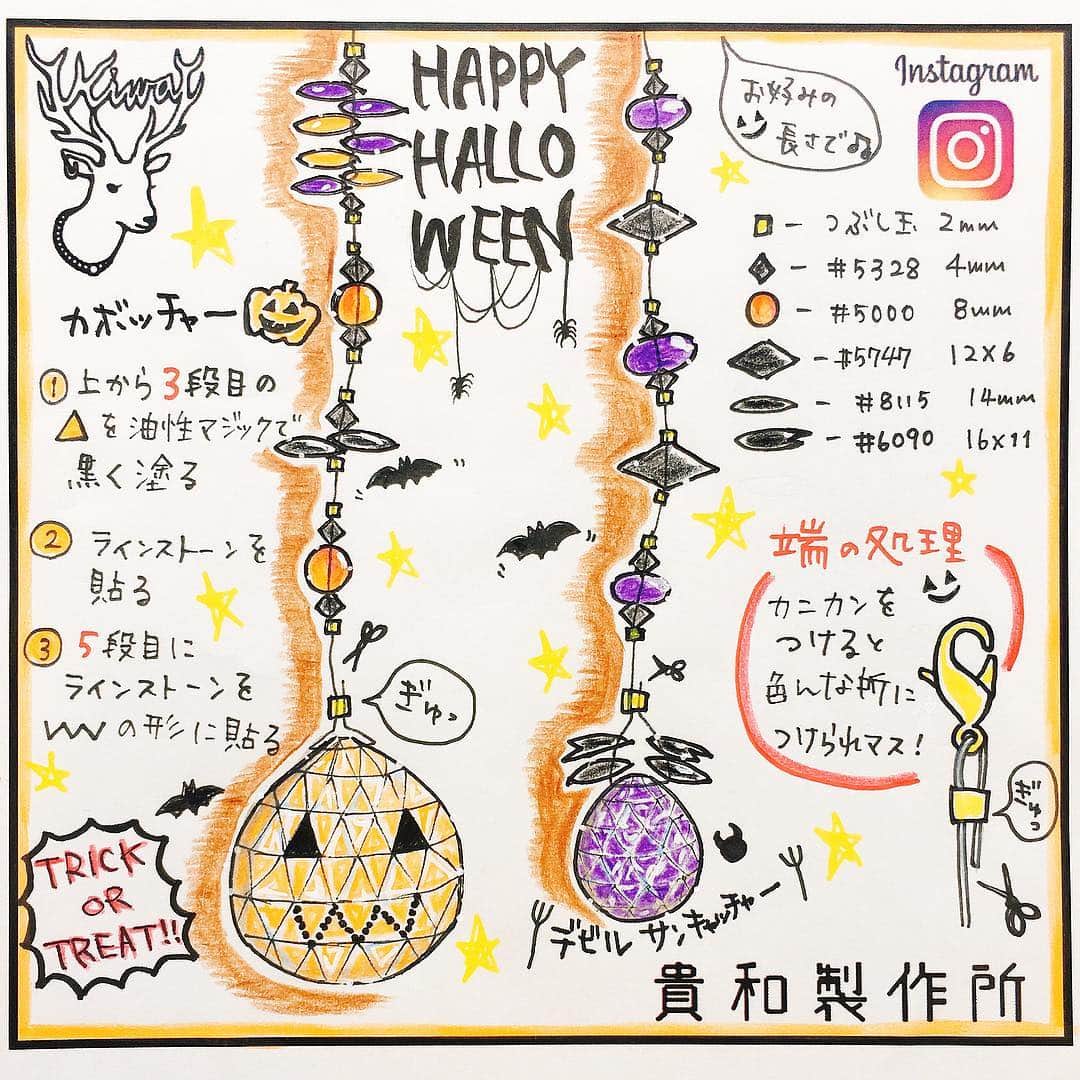 Kiwa
HAPPY
HALLO
WEEN
お好みの
長さで♪♪
Instagram
つぶし玉 2mm
#5328 4mm
#5000 8mm
#5747 12×6
#8115 14mm
#6090 16×11
カボッチャー
① 上から3段目の
▲を油性マジックで
黒く塗る
② ラインストーンを
貼る
③ 5段目に
ラインストーンを
wwの形に貼る
ぎゅっ
端の処理
カニカンを
つけると
色んな所に
つけられマス!
ぎゅっ
TRICK
OR
TREAT!!
デビルサンキャッチャー
貴和製作所